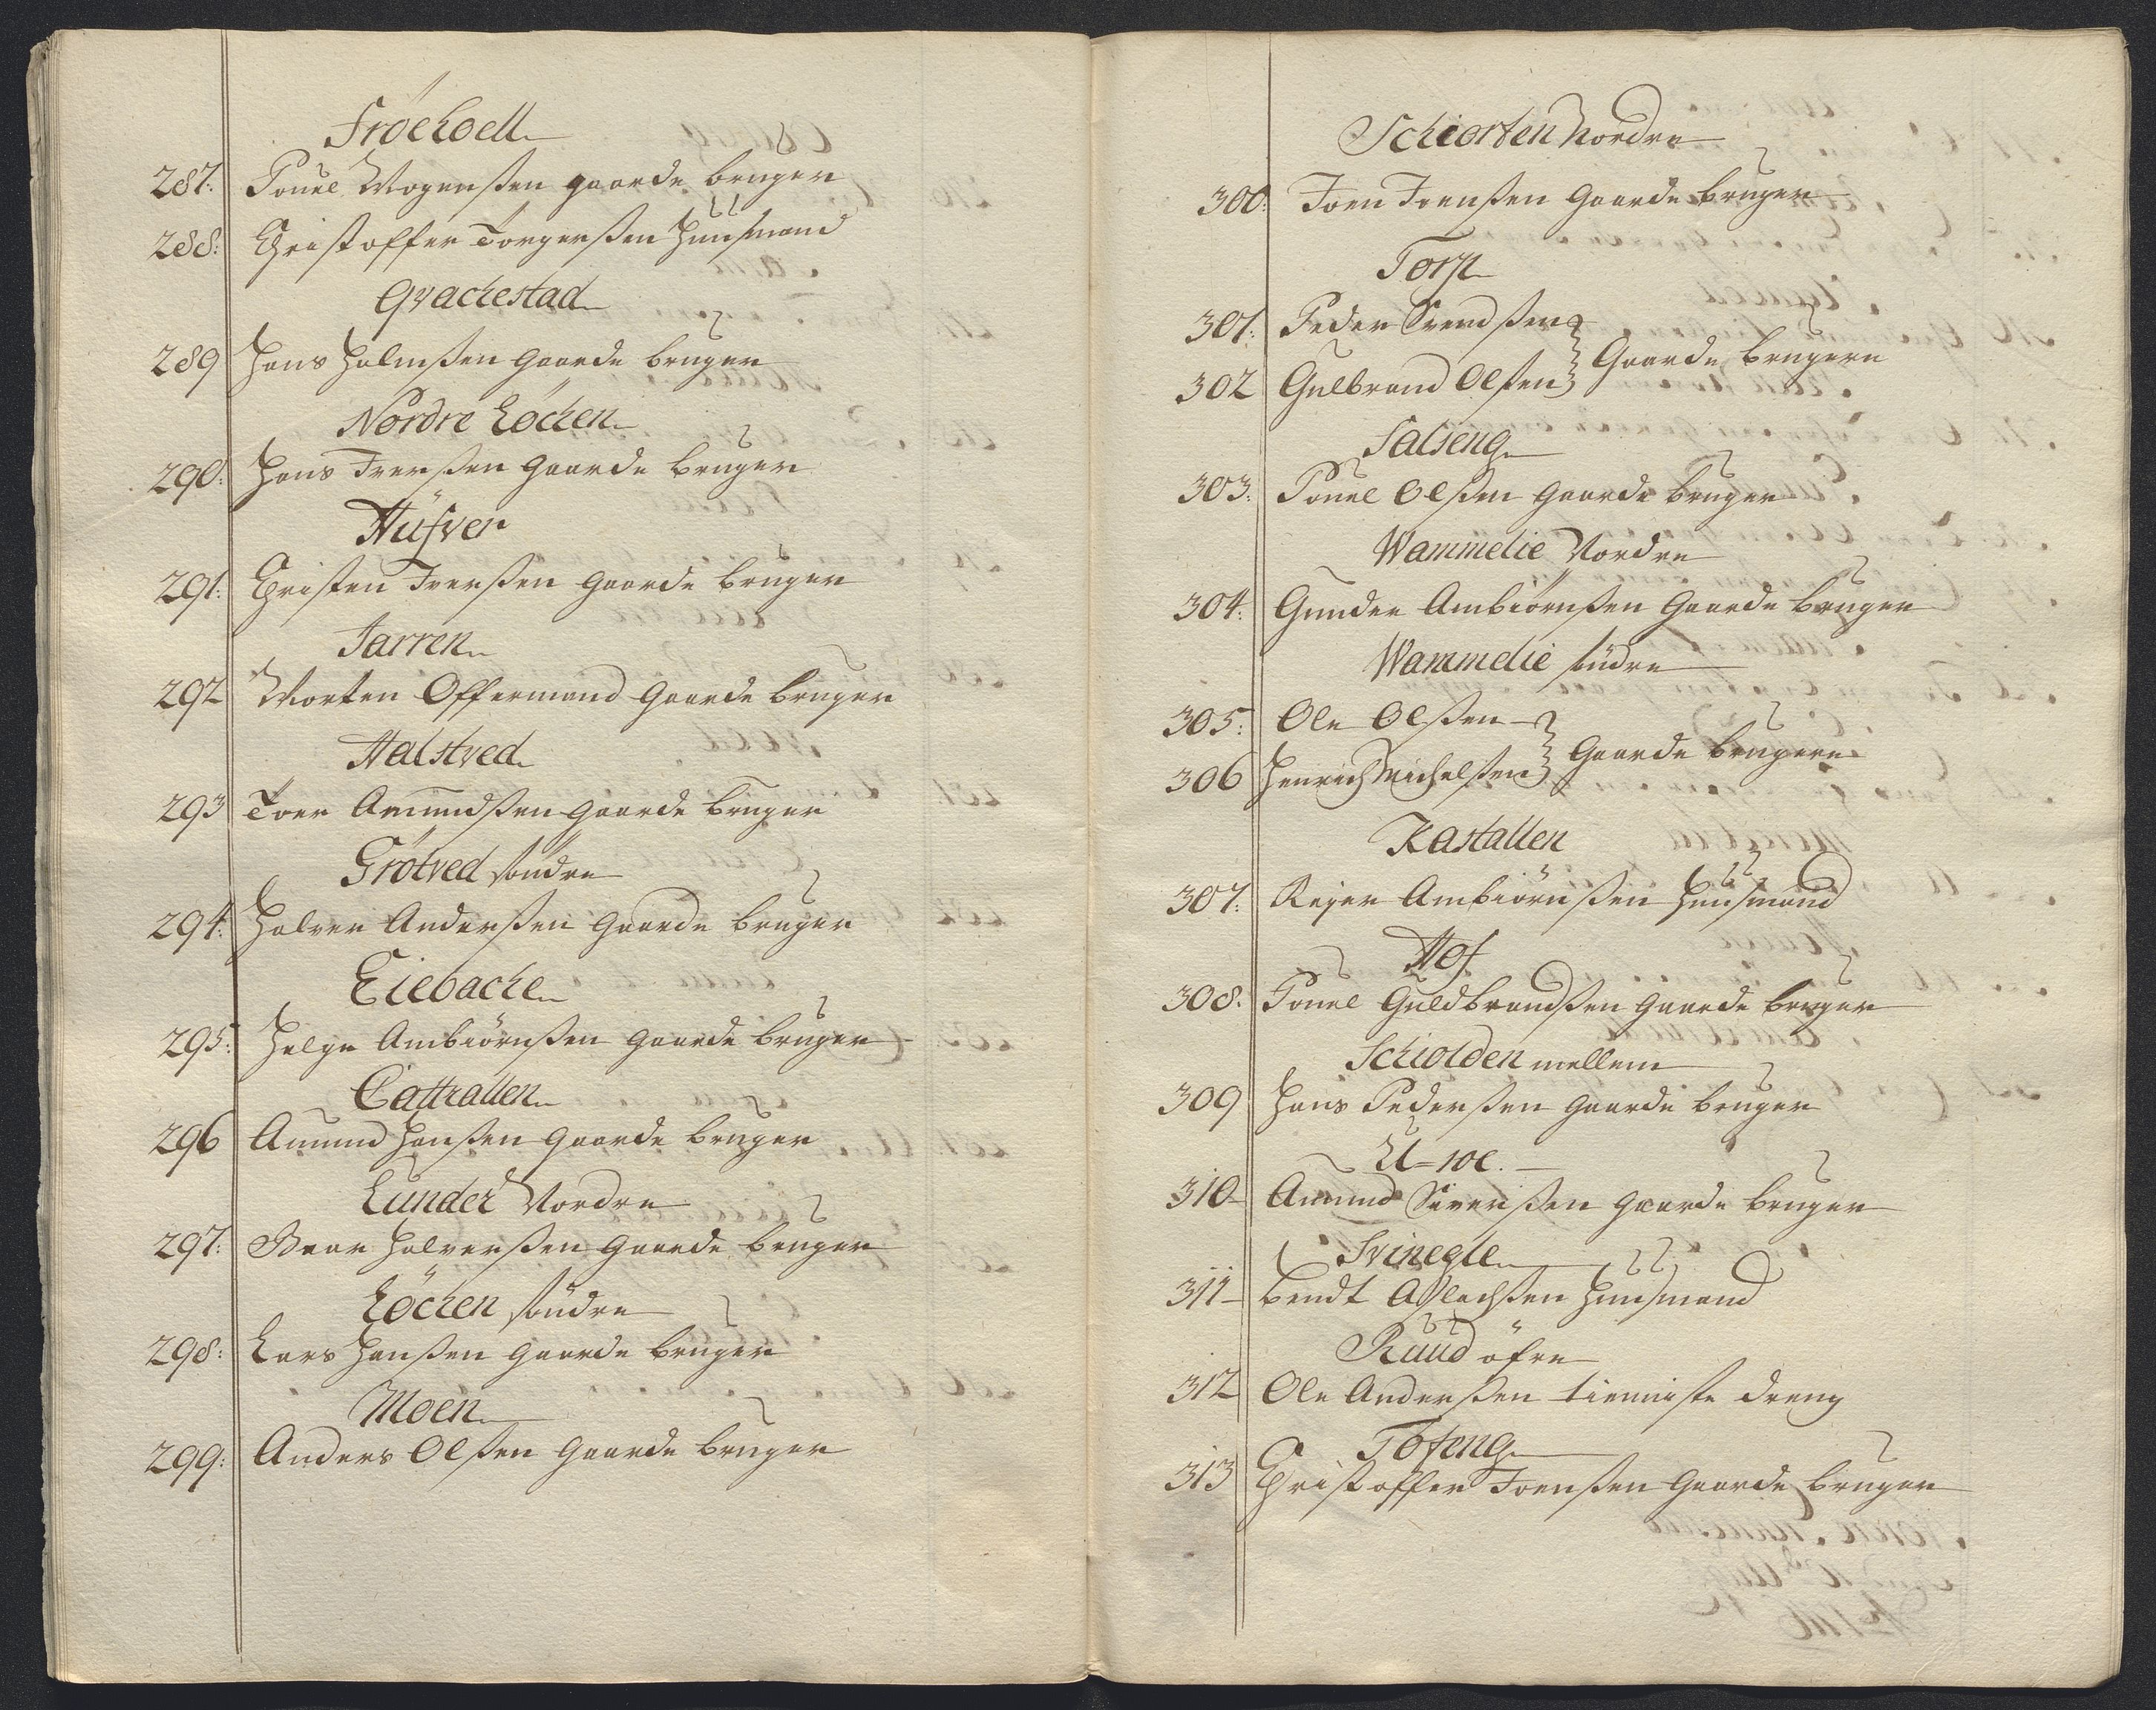 Fröehoell
287: Pouel Mogensßen gaarde bruger
288: Christoffer Torgersßen Huusmand
Qvackestad
289 Hans Holmsßen gaarde bruger
Nordre Löchen
290: Hans Iversßen gaarde bruger
Hüfver
291: Christen Iversßen gaarde bruger
Jarren
292 Morten Offermand gaarde bruger
Halstved
293 Toer Amundsßen gaarde bruger
Grötved söndre
294: Halvor Andersßen gaarde bruger
Eiebacke
295: Helge Ambiörnsßen gaarde bruger
Amund Hansßen gaarde bruger
296
Lunder Nordre
297: Halversßen gaarde bruger
Löchen söndre
298: Lars Hansßen gaarde bruger
Moen
299: Anders Olsßen gaarde bruger
Schiorten Nordre
300: Joen Joensßen Gaarde bruger
Torp
301: Peder Svendsßen
302 Gulbrand Olsßen Gaarde brugere
Salseng
303: Pouel Olsßen gaarde bruger
Wammelie Nordre
304: Gunder Ambiörnsßen Gaarde bruger
Wammelie südre
305: Ole Olsßen
306 Henrich Michelsßen Gaarde brugere
Kastallen
307: Rejer Ambiörnsßen Huusmand
Hof
308: Pouel Guldbrandsßen gaarde bruger
Schiolden mellem
309 Hans Pedersßen gaarde bruger
310 Amund Siversßen gaarde bruger
Svinegle
311 Bendt Aslachsßen Huusmand
Ruud öfre
312 Ole Andersßen tienniste dreng
Tofeng
313 Christoffer Joensßen gaarde bruger